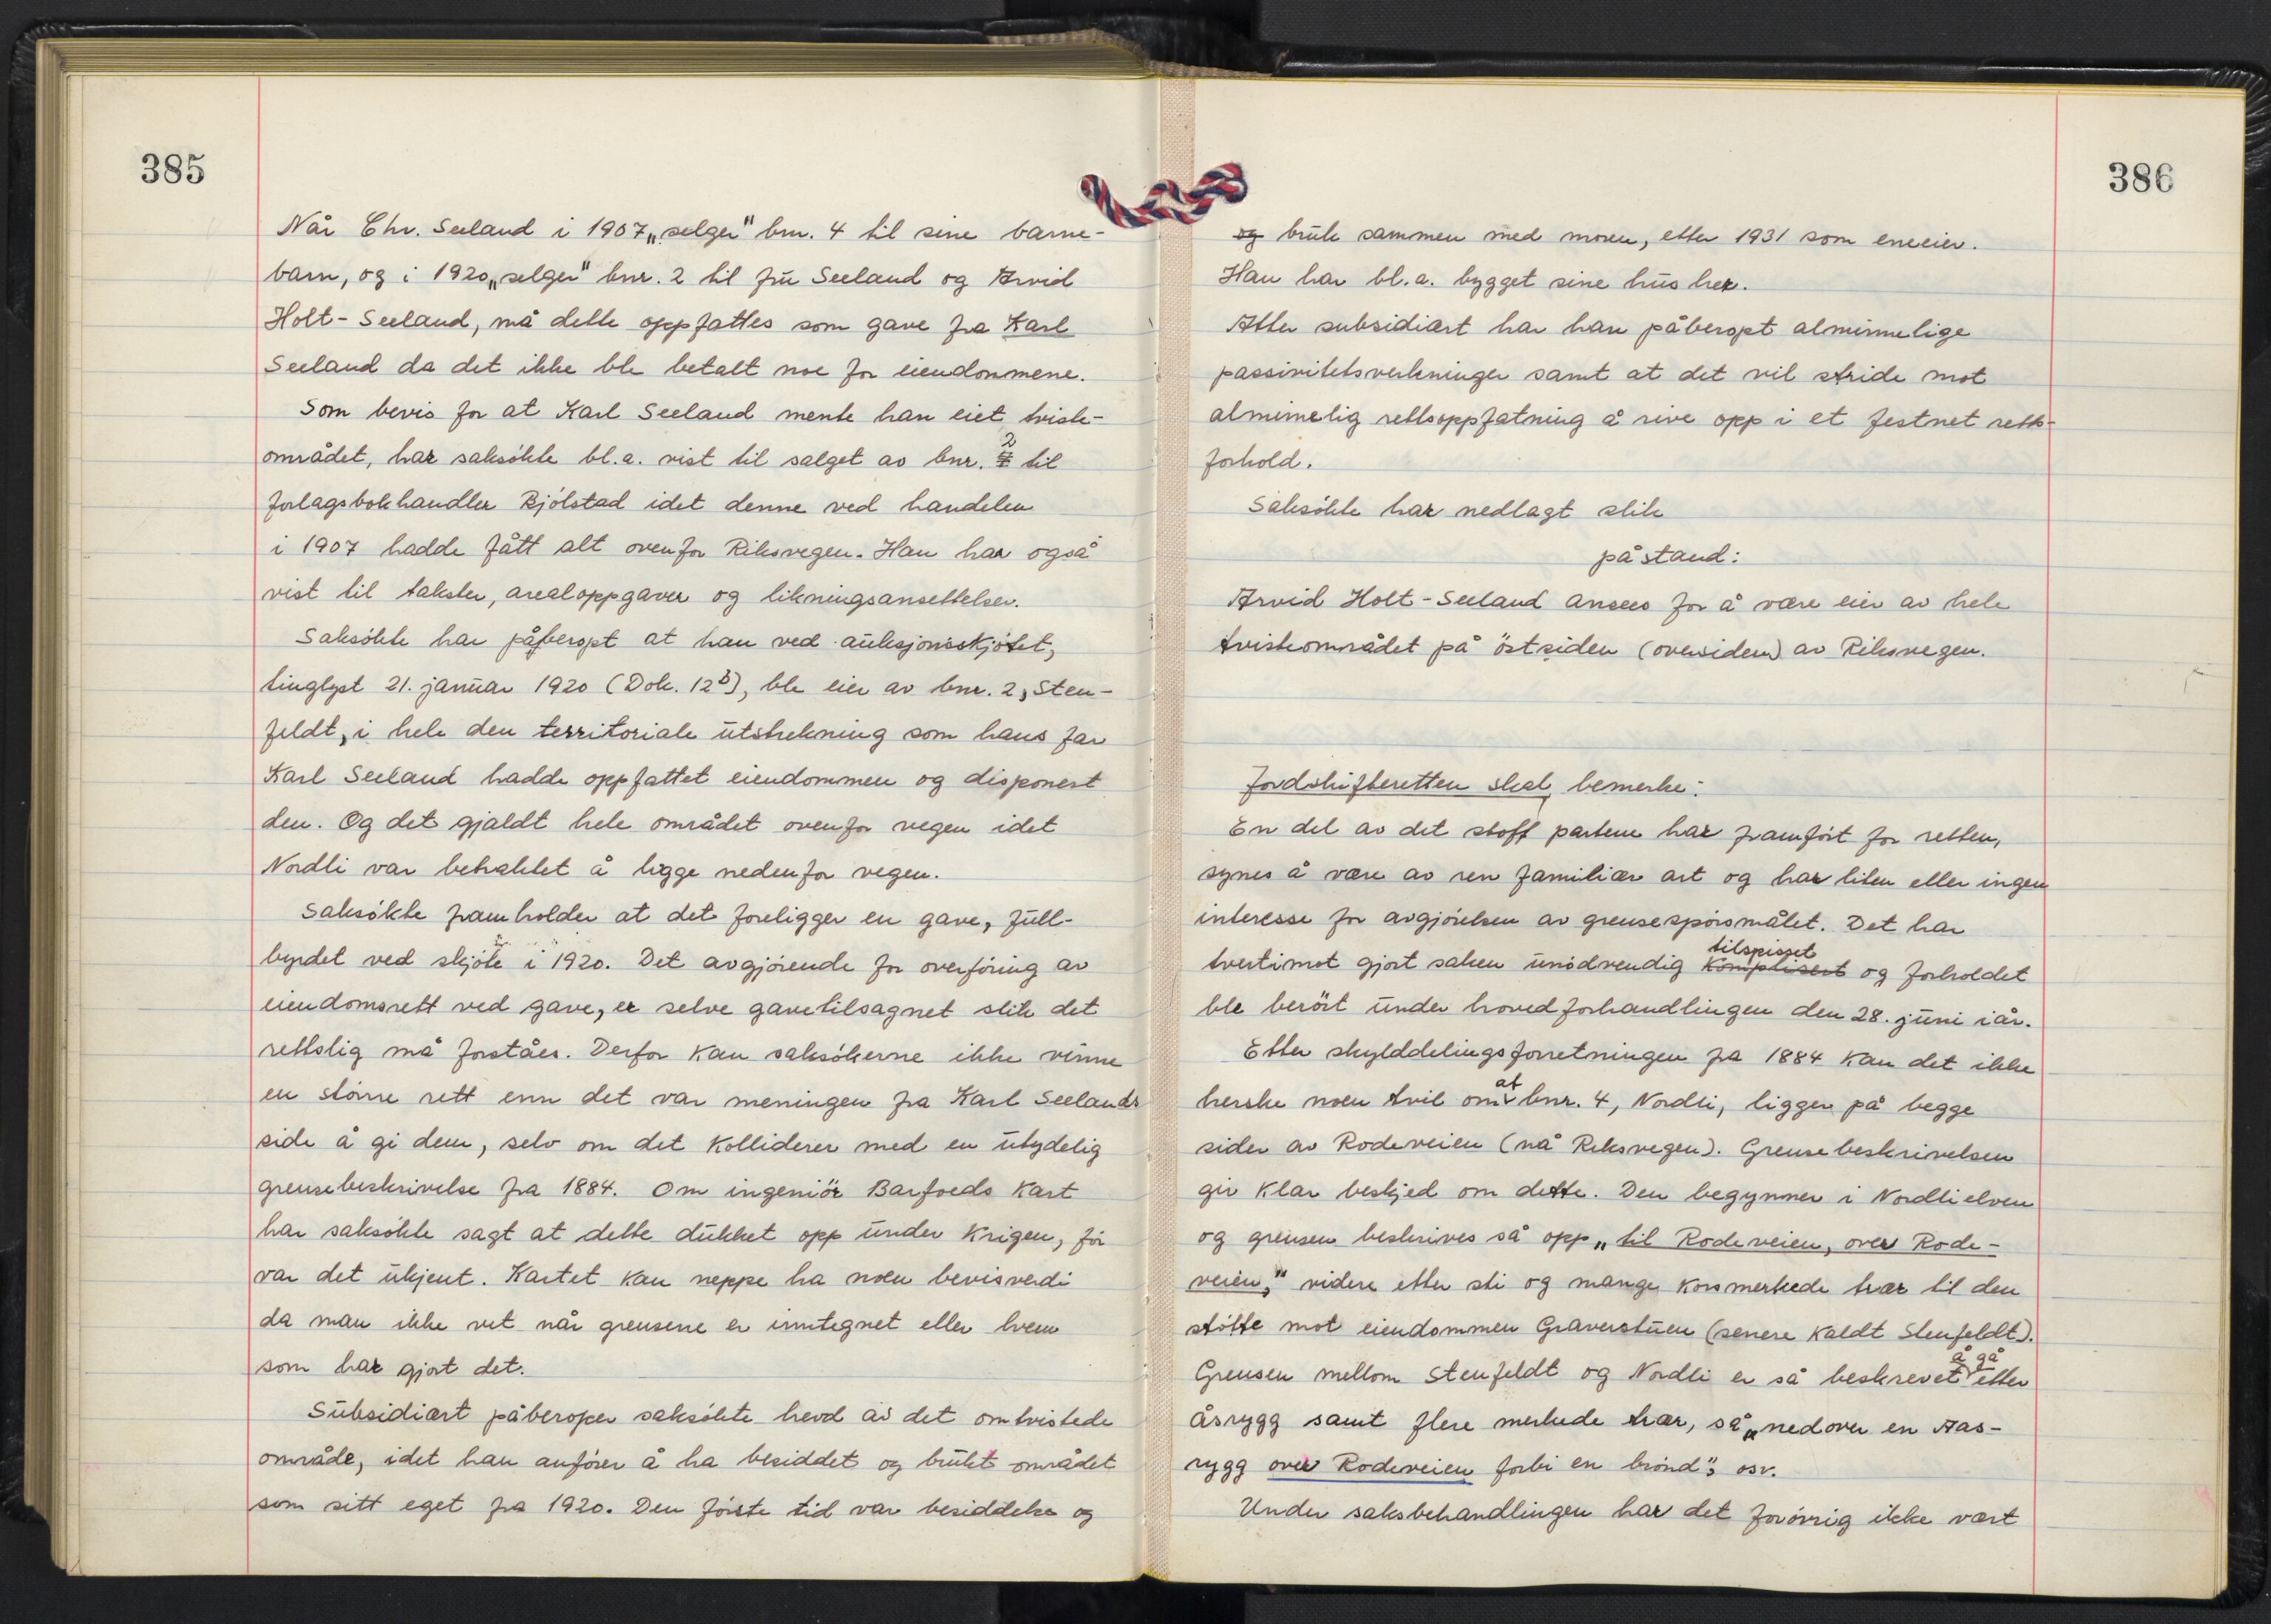 385
Når Chr. Seeland i 1907 „selger" bnr. 4 til sine barne-
barn, og i 1920 „selger" bnr. 2 til fru Seeland og Arvid
Holt-Seeland, må dette oppfattes som gave fra Karl
Seeland da det ikke ble betalt noe for eiendommene.
Som bevis for at Karl Seeland mente han eiet tviste-
området, har saksökte bl.a. vist til salget av bnr. 2 til
forlagsbokhandler Bjölstad idet denne ved handelen
i 1907 hadde fått alt ovenfor Riksvegen. Han har også
vist til takster, arealoppgaver og likningsansettelser.
Saksökte har påberopt at han ved auksjonsskjötet,
tinglyst 21. januar 1920 (Dok. 12b), ble eier av bnr. 2, Sten-
feldt, i hele den territoriale utstrekning som hans far
Karl Seeland hadde oppfattet eiendommen og disponert
den. Og det gjaldt hele området ovenfor vegen idet
Nordli var betraktet å ligge nedenfor vegen.
Saksökte framholder at det foreligger en gave, full-
byrdet ved skjöte i 1920. Det avgjörende for overföring av
eiendomsrett ved gave, er selve gavetilsagnet slik det
rettslig må forståes. Derfor kan saksökerne ikke vinne
en större rett enn det var meningen fra Karl Seelands
side å gi dem, selv om det kolliderer med en utydelig
grensebeskrivelse fra 1884. Om ingeniör Barfoeds kart
har saksökte sagt at dette dukket opp under krigen, för
var det ukjent. Kartet kan neppe ha noen bevisverdi
da man ikke vet når grensene er inntegnet eller hvem
som har gjort det.
Subsidiært påberoper saksökte hevd av det omtvistede
område, idet han anförer å ha besiddet og brukt området
som sitt eget fra 1920. Den förste tid var besiddelse og
386
og bruk sammen med moren, etter 1931 som eneeier.
Han har bl.a. bygget sine hus her.
Atter subsidiært har han påberopt alminnelige
passivitetsvirkninger samt at det vil stride mot
alminnelig rettsoppfatning å rive opp i et festnet retts-
forhold.
Saksökte har nedlagt slik
påstand:
Arvid Holt-Seeland ansees for å være eier av hele
tvisteområdet på östsiden (oversiden) av Riksvegen.
Jordskifteretten skal bemerke:
En del av det stoff partene har framfört for retten,
synes å være av ren familiær art og har liten eller ingen
interesse for avgjörelsen av grensespörsmålet. Det har
tilspisset
tvertimot gjort saken unödvendig komplisert og forholdet
ble berört under hovedforhandlingen den 28. juni i år.
Etter skylddelingsforretningen fra 1884 kan det ikke
at
herske noen tvil om bnr. 4, Nordli, ligger på begge
sider av Rodeveien (nå Riksvegen). Grensebeskrivelsen
gir klar beskjed om dette. Den begynner i Nordlielven
og grensen beskrives så opp „til Rodeveien, over Rode-
veien," videre etter sti og mange korsmerkede trær til den
stötte mot eiendommen Graverstuen (senere kaldt Stenfeldt).
å gå
Grensen mellom Stenfeldt og Nordli er så beskrevet etter
åsrygg samt flere merkede trær, så „nedover en Aas-
rygg over Rodeveien forbi en brönd", osv.
Under saksbehandlingen har det forövrig ikke vært